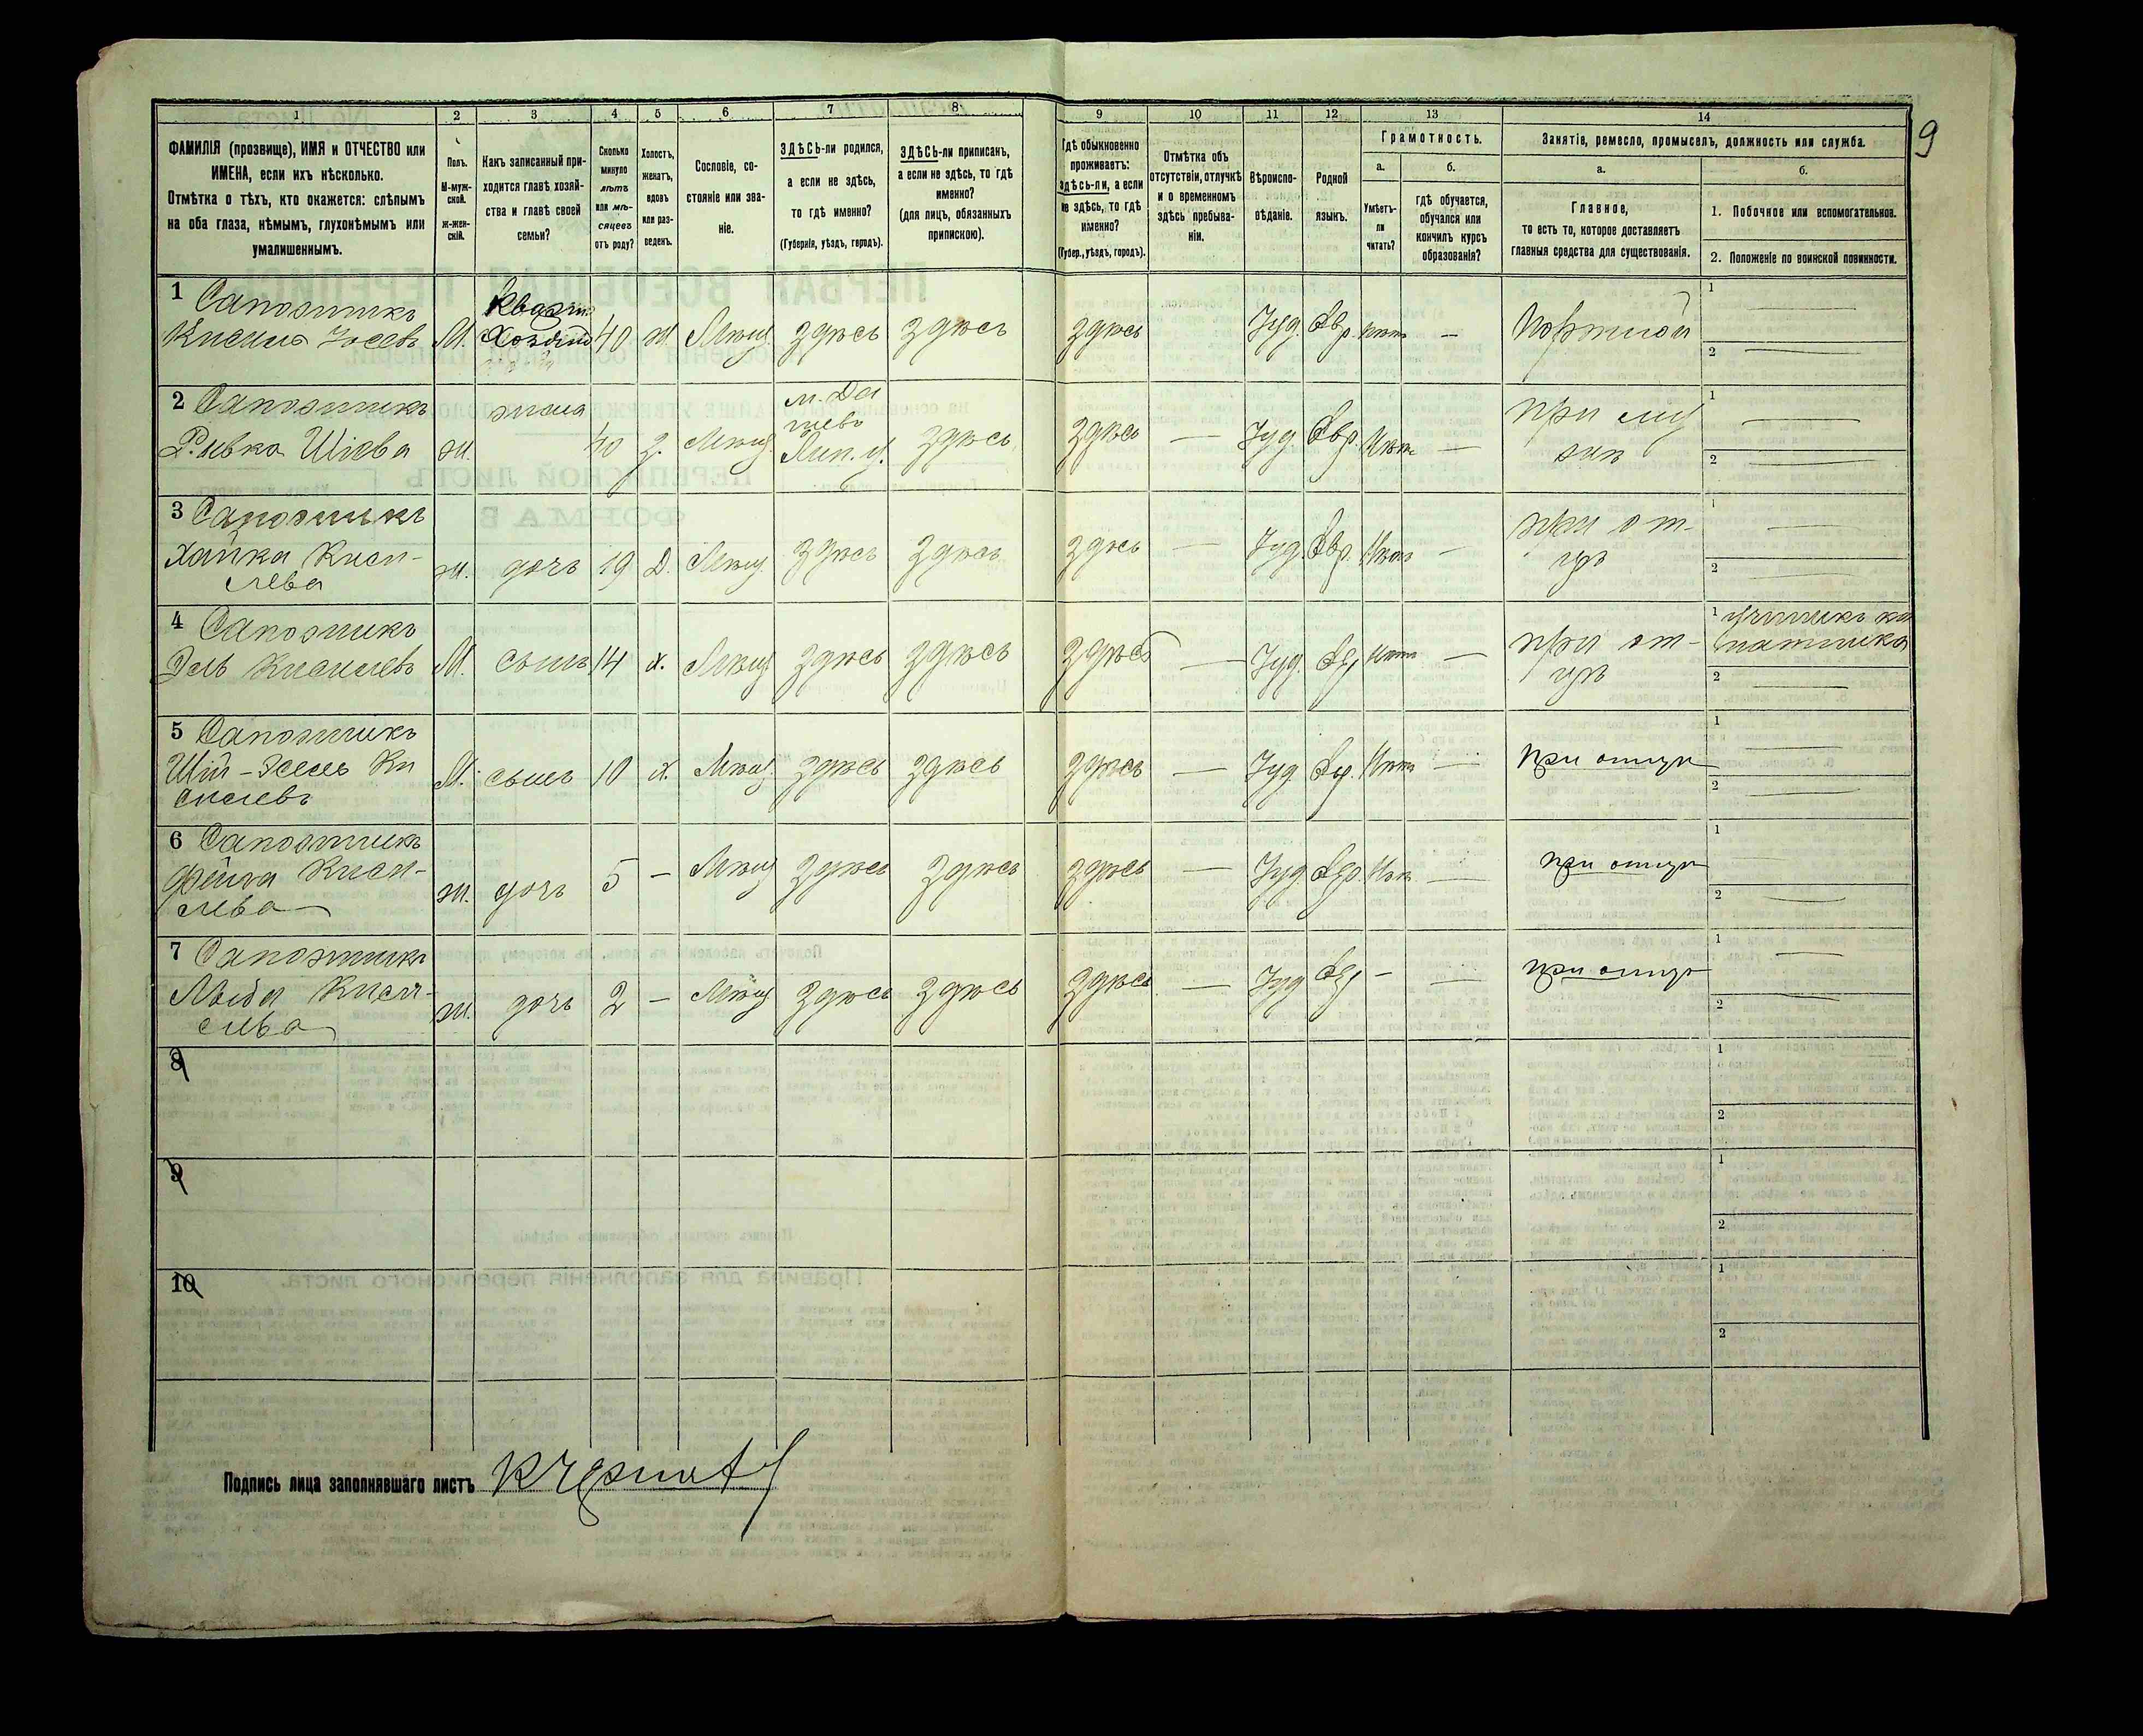 9
1 2 3 4 5 6 7 8 9 10 11 12 13 14
ФАМИЛІЯ (прозвище), ИМЯ и ОТЧЕСТВО или
ИМЕНА, если ихъ нѣсколько.
Отмѣтка о тѣхъ, кто окажется: слѣпымъ
на оба глаза, нѣмымъ, глухонѣмымъ или
умалишеннымъ.
Полъ.
М-муж-
ской.
Ж-жен-
скій.
Какъ записанный при-
ходится главѣ хозяй-
ства и главѣ своей
семьи?
Сколько
минуло
лѣтъ
или мѣ-
сяцевъ
отъ роду?
Холостъ,
женатъ,
вдовъ
или раз-
веденъ.
Сословіе, со-
стояніе или зва-
ніе.
ЗДѢСЬ-ли родился,
а если не здѣсь,
то гдѣ именно?
(Губернія, уѣздъ, городъ).
ЗДѢСЬ-ли приписанъ,
а если не здѣсь, то гдѣ
именно?
(для лицъ, обязанныхъ
припискою).
Гдѣ обыкновенно
проживаетъ:
здѣсь-ли, а если
не здѣсь, то гдѣ
именно?
(Губер., уѣздъ, городъ).
Отмѣтка объ
отсутствіи, отлучкѣ
и о временномъ
здѣсь пребыва-
ніи.
Вѣроиспо-
вѣданіе.
Родной
языкъ.
Грамотность.
а.
Умѣетъ-
ли
читать?
б.
гдѣ обучается,
обучался или
кончилъ курсъ
образованія?
Занятіе, ремесло, промыселъ, должность или служба.
а.
Главное,
то есть то, которое доставляетъ
главныя средства для существованія.
б.
1. Побочное или вспомогательное.
2. Положеніе по воинской повинности.
1 Сапожникъ
М. Хозяинъ 40 ж. Мѣщ. здѣсь здѣсь здѣсь Іуд. Евр. нѣтъ — Портной
1 —
2 —
2 Сапожникъ
Ривка Шіева ж. жена 40 З. Мѣщ. Лип. у. здѣсь здѣсь — Іуд. Евр. Нѣтъ — при му
жѣ
1 —
2 —
3 Сапожникъ
Хайка Киси-
лева ж. дочь 19 Д. Мѣщ. здѣсь здѣсь здѣсь — Іуд. Евр. Нѣтъ — при от-
цѣ
1 —
2 —
4 Сапожникъ
Эль Кисилевъ М. сынъ 14 х. Мѣщ. здѣсь здѣсь здѣсь — Іуд. Евр. нѣтъ — при от-
цѣ
1
2 —
5 Сапожникъ
Ки
силевъ М. сынъ 10 х. Мѣщ. здѣсь здѣсь здѣсь — Іуд. Евр. Нѣтъ — при отцѣ
1 —
2 —
6 Сапожникъ
Фейга Киси-
лева ж. дочь 5 — Мѣщ. здѣсь здѣсь здѣсь — Іуд. Евр. Нѣтъ — при отцѣ
1 —
2 —
7 Сапожникъ
Киси-
лева ж. дочь 2 — Мѣщ. здѣсь здѣсь здѣсь — Іуд. Евр. — — при отцѣ
1 —
2 —
8
1
2
9
1
2
10
1
2
Подпись лица заполнявшаго листъ